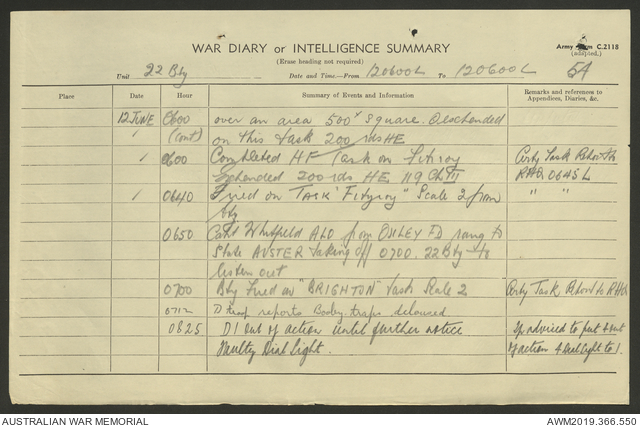 Army Form C.2118
WAR DIARY or INTELLIGENCE SUMMARY
(adapted.)
(Erase heading not required)
54
Unit 22 Bty Date and Time.—From 120600L To 120600L
Place Date Hour Summary of Events and Information Remarks and references to Appendices, Diaries, &c.
12 JUNE 0600 over an area 500ˣ square.
(cont) on this task 200 rds HE
0600 Completed HF Task on Fitzroy Arty Task Report to
Expended 200 rds HE 119 Ch III RHQ 0645L
0640 Fired on TASK "Fitzroy" Scale 2 from " "
bty
0650 Capt Whitfield ALO from rang to
State AUSTER taking off 0700. 22 Bty to
listen out
0700 Bty Fired on "BRIGHTON" task Scale 2 Arty Task Report to RHQ
0712 D troop reports Booby traps deloused
0825 D1 out of action until further notice advised to put out
Faulty Dial Sight. of action & Dial Sight to 1.
AUSTRALIAN WAR MEMORIAL
AWM2019.366.550